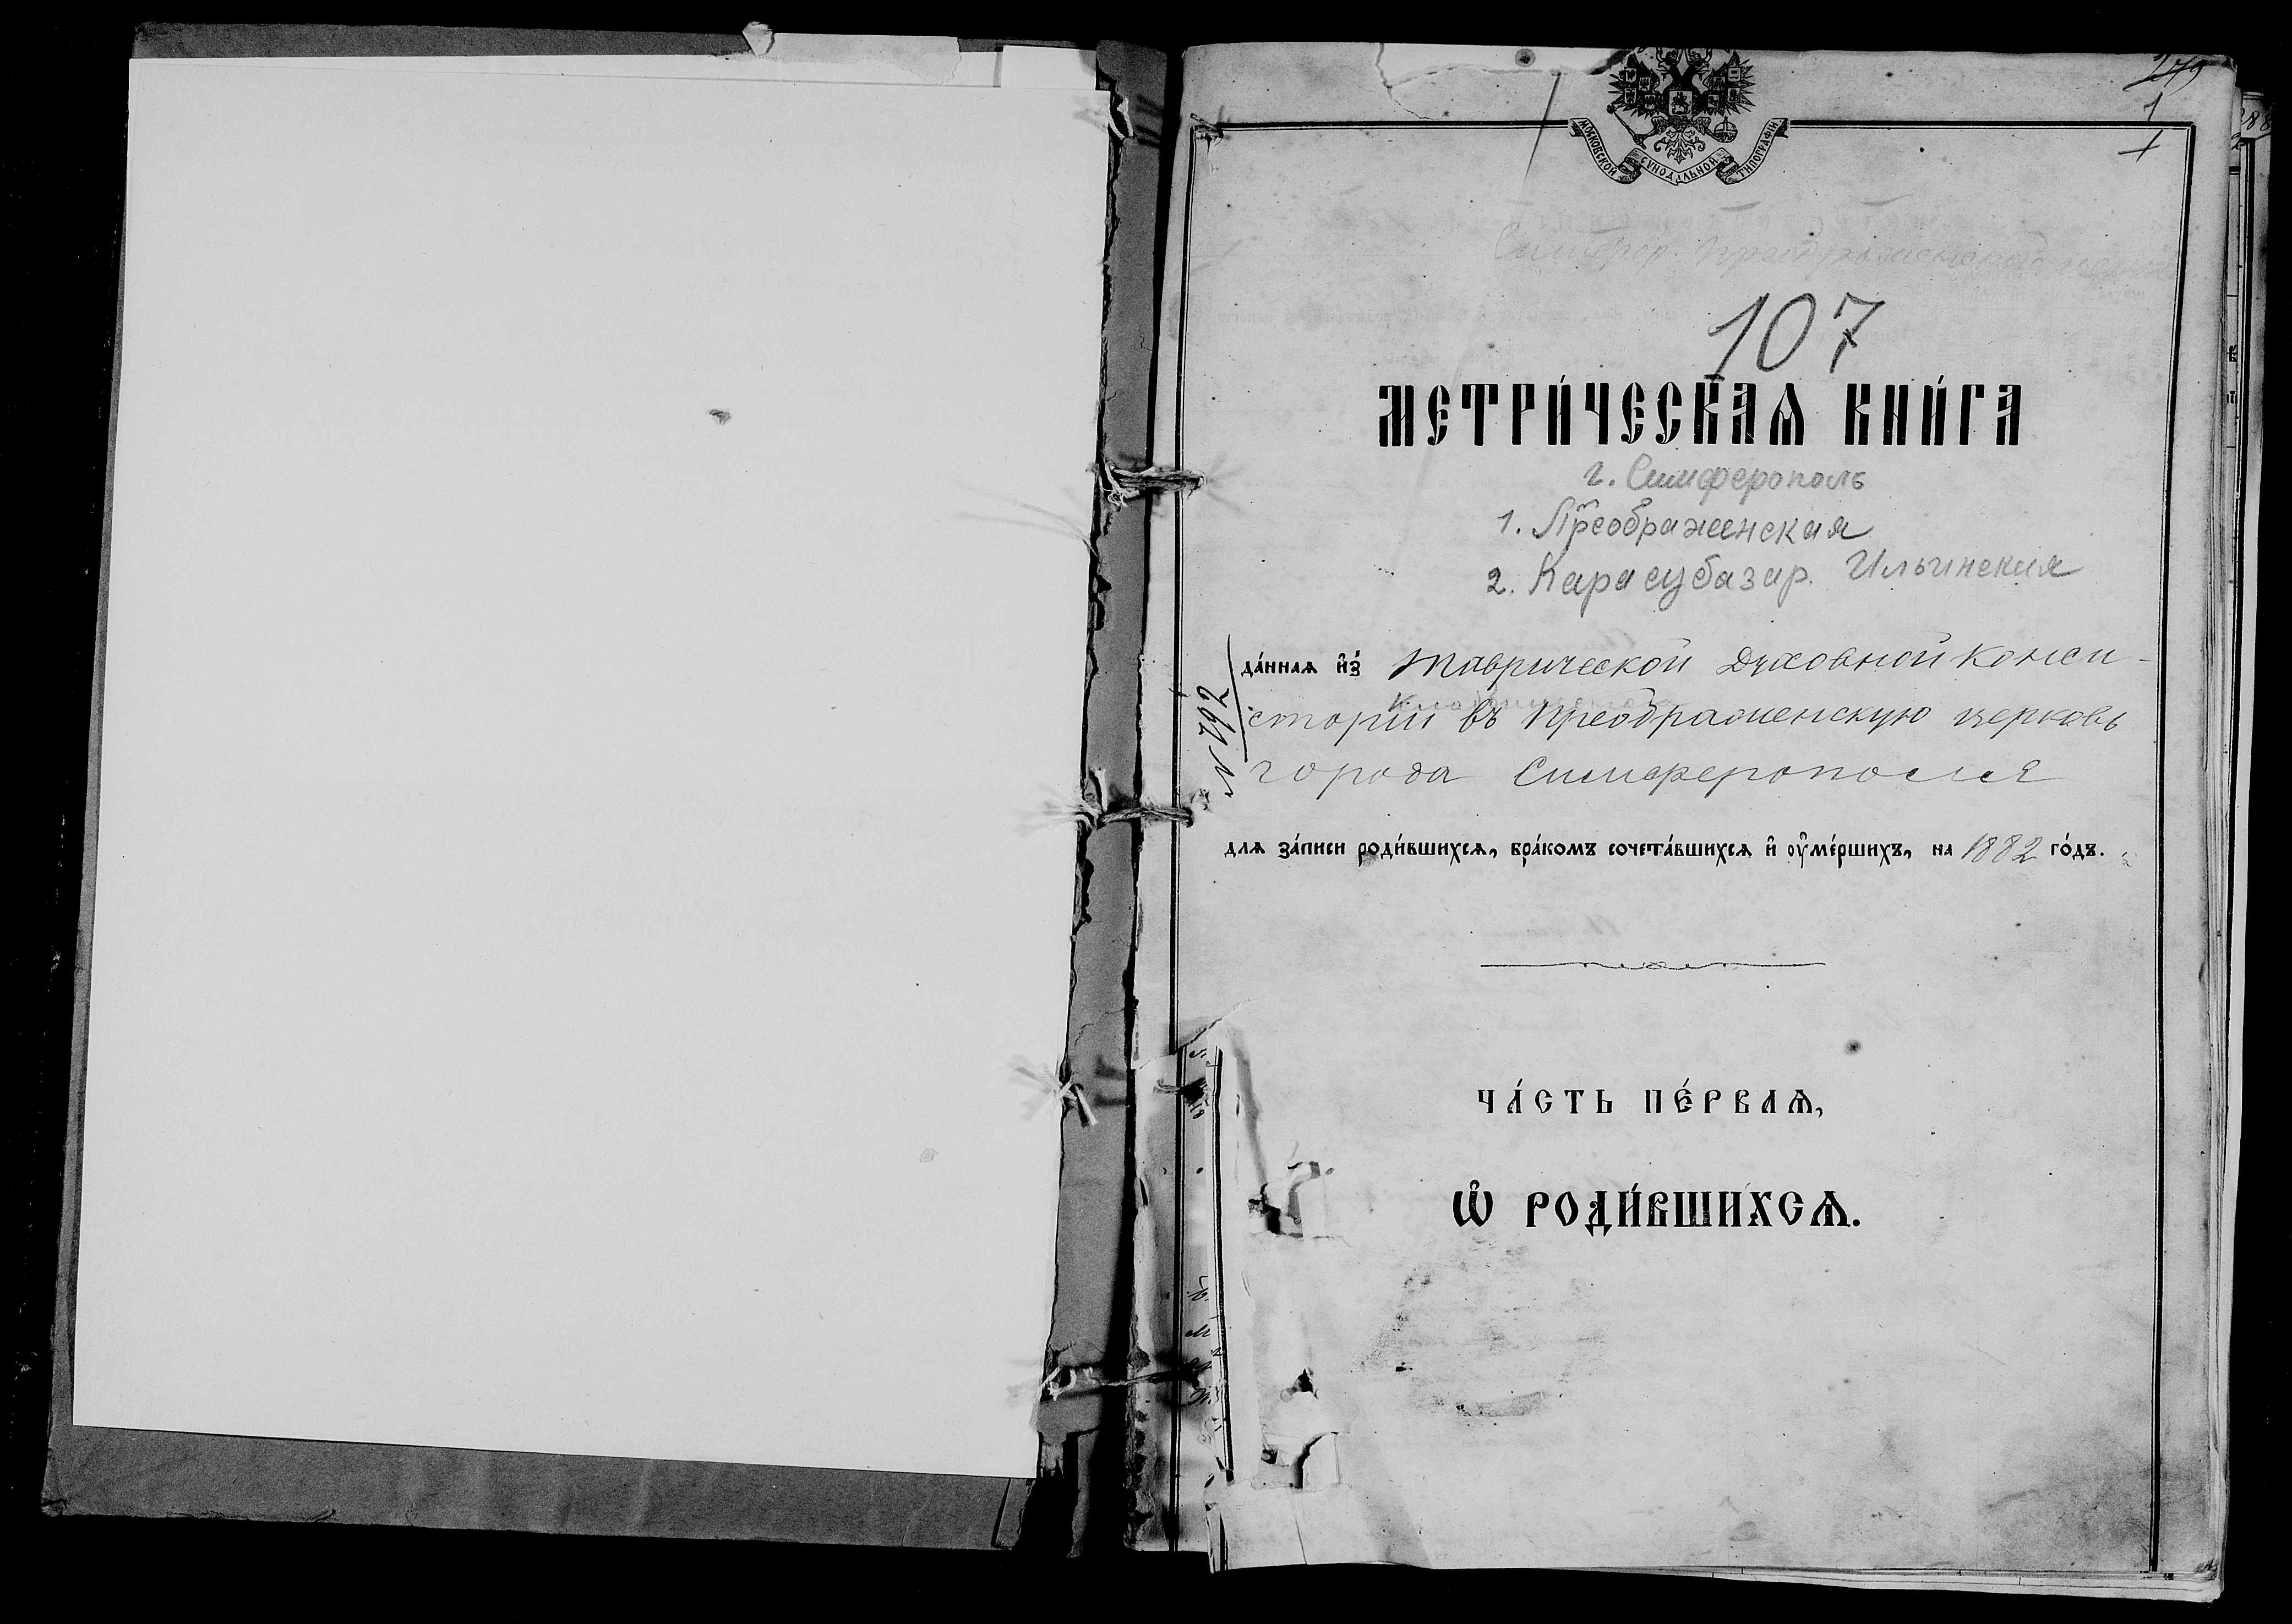 279
1
МОСКОВСКОЙ СѴНОДАЛЬНОЙ ТИПОГРАФІИ
Симфер. Преображенской
107
МЕТРИ́ЧЕСКАѦ КНИ́ГА
г. Симферополь
1. Преображенская
2. Карасубазар. Ильинская
да́ннаѧ и҆з̾ Таврической Духовной Конси-
сторіи въ Преображенскую церковь
города Симферополя
№ 192
длѧ за́писи роди́вшихсѧ, бра́комъ сочета́вшихсѧ и҆ оу҆ме́ршихъ, на 1882 го́дъ.
ЧА́СТЬ ПЕ́РВАѦ,
Ѽ РОДИ́ВШИХСѦ.